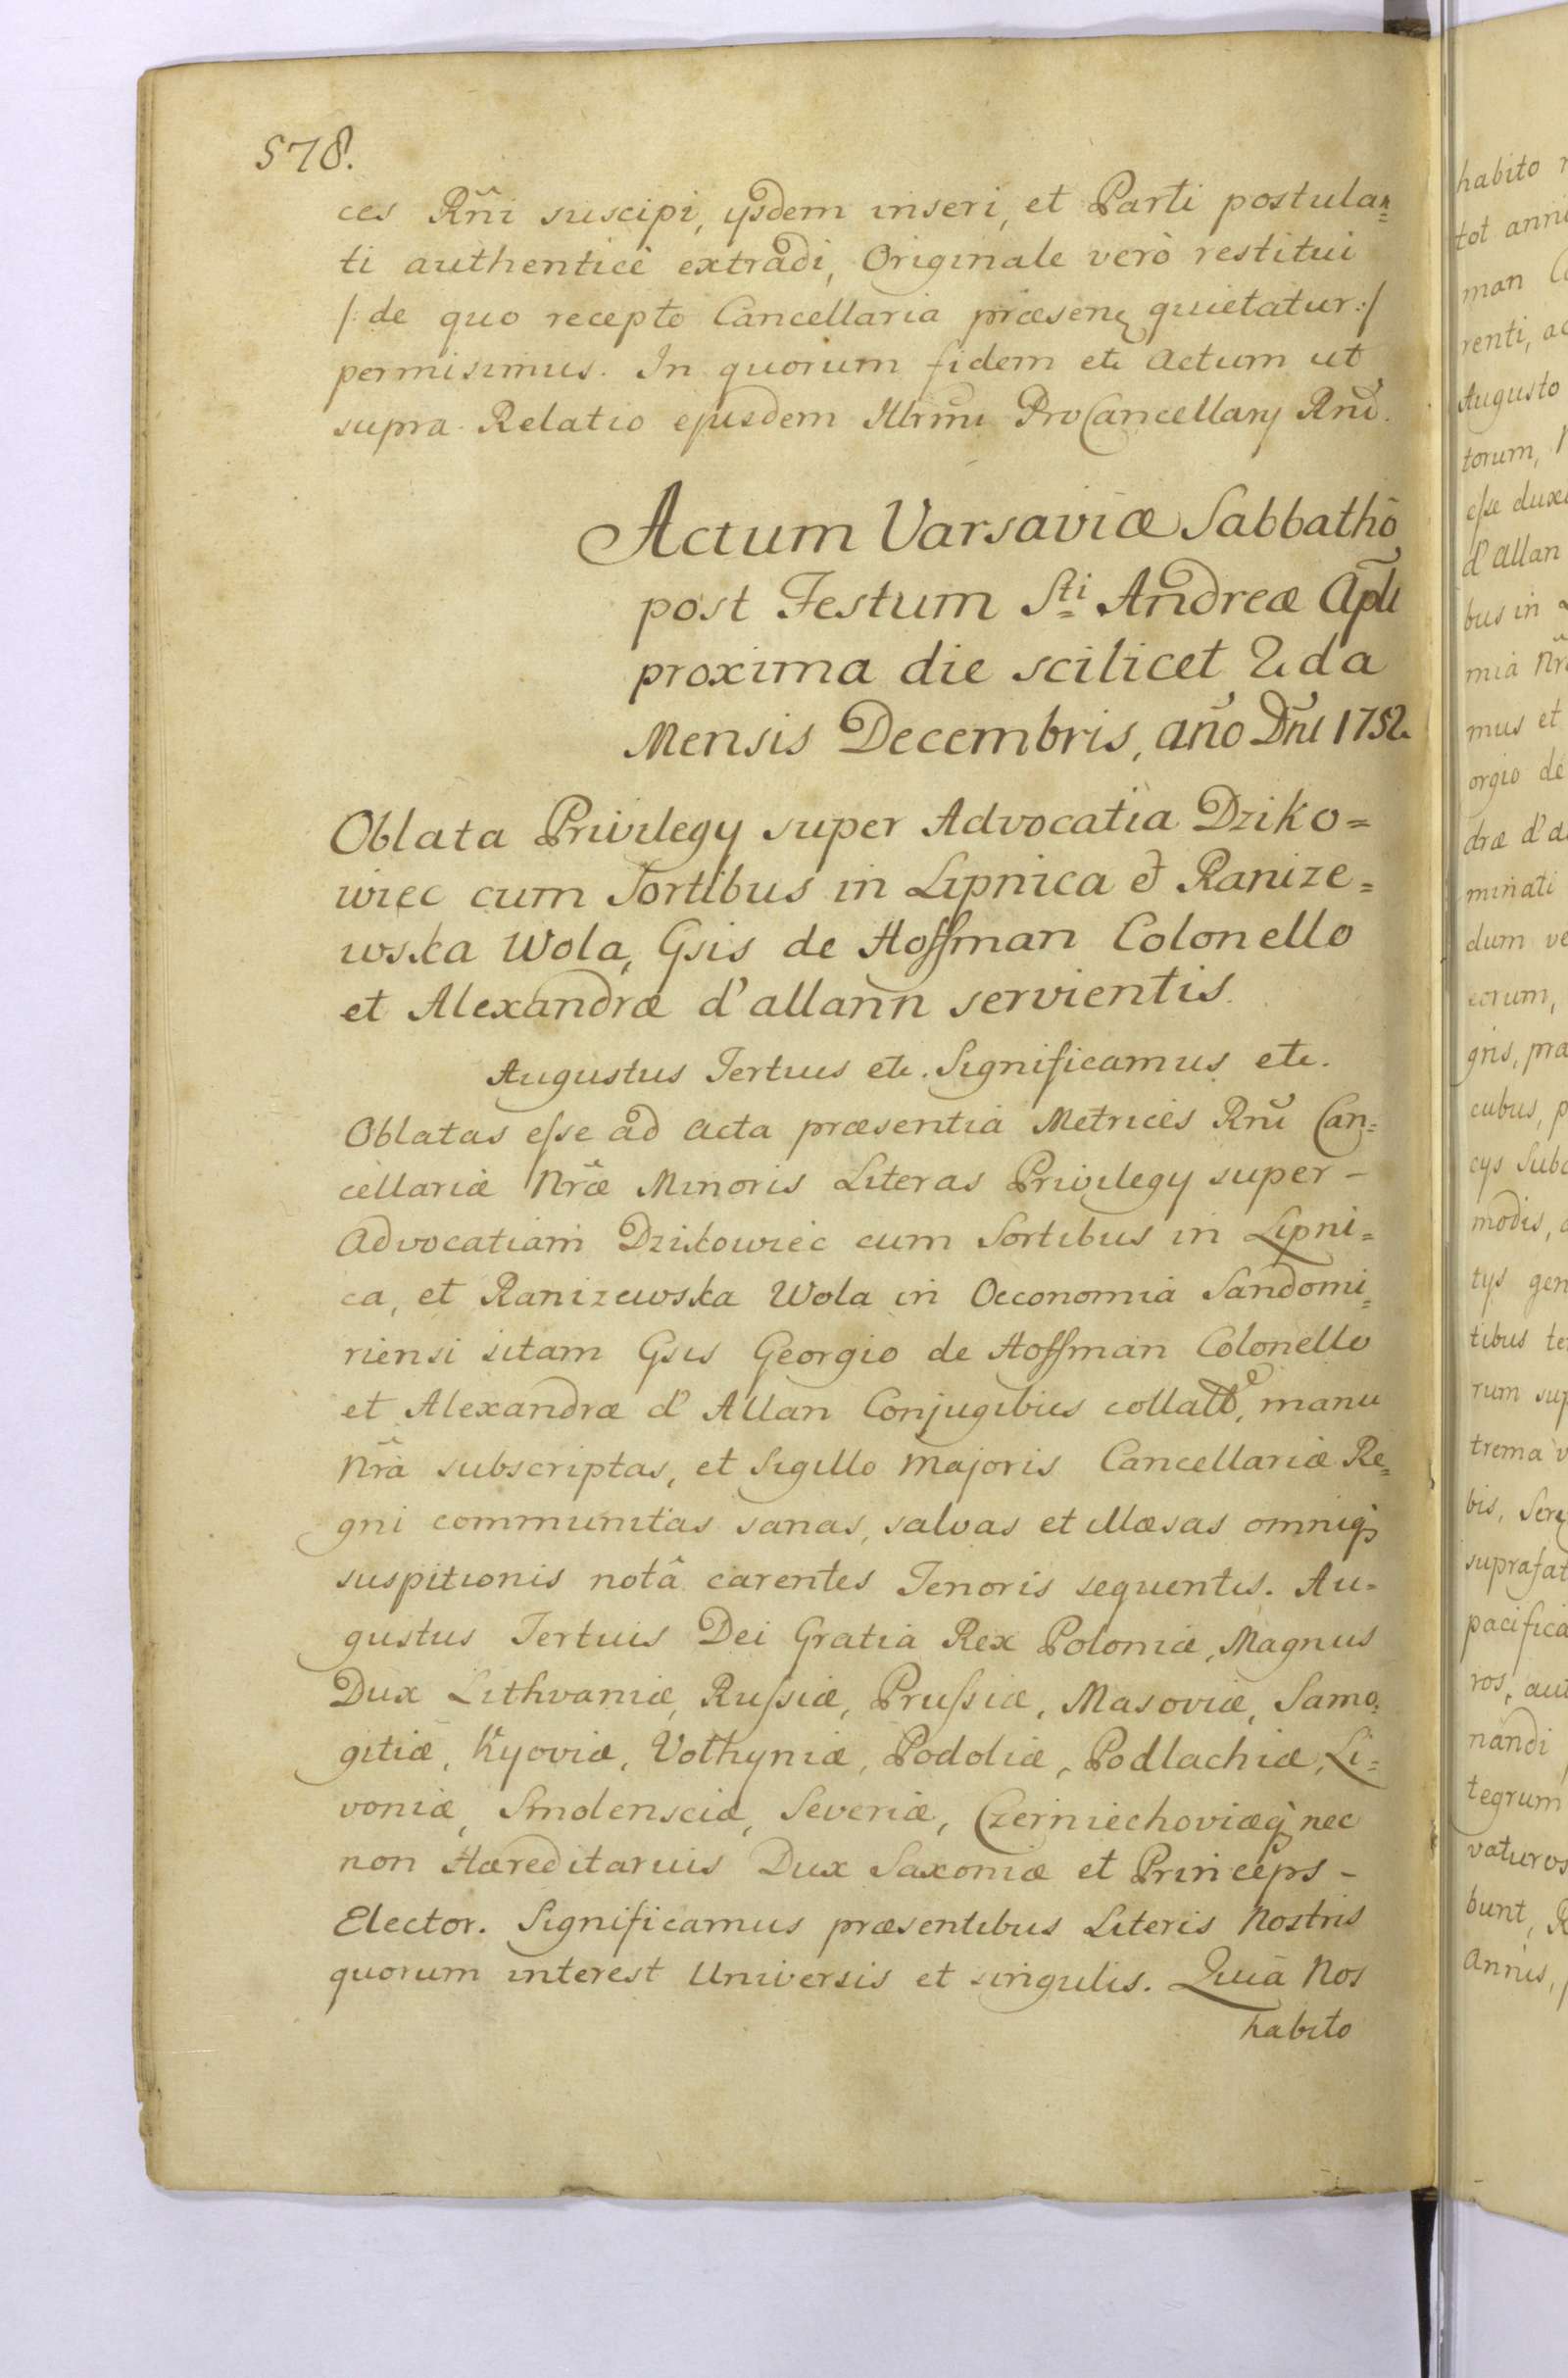 578.
ces Rñi suscipi, ijsdem inseri, et Parti postulan=
ti authenticè extradi, Originale verò restitui
/: de quo recepto Cancellaria præsens quietatur :/
permisimus. In quorum fidem etc Actum ut
supra. Relatio ejusdem Illrmi ProCancellarij Rni.
Actum Varsaviæ Sabbathō
post Festum Sti Andreæ Apli
proxima die scilicet 2da
Mensis Decembris, año Dñi 1752.
Oblata Privilegij super Advocatia Dziko=
wiec cum Sortibus in Lipnica et Ranize=
wska Wola, Gsis de Hoffman Colonello
et Alexandræ d'allann servientis.
Augustus Tertius etc. Significamus etc.
Oblatas esse ad Acta præsentia Metrices Rni Can=
cellariæ Nræ Minoris Literas Privilegij super -
Advocatiam Dzikowiec cum Sortibus in Lipni=
ca, et Ranizewska Wola in Oeconomia Sandomi=
riensi sitam Gsis Georgio de Hoffman Colonello
et Alexandræ d' Allan Conjugibus collatæ, manu
Nrâ subscriptas, et Sigillo Majoris Cancellariæ Re=
gni communitas sanas, salvas et illæsas omniq;
suspitionis notâ carentes Tenoris sequentis. Au=
gustus Tertuis Dei Gratia Rex Poloniæ, Magnus
Dux Lithvaniæ, Russiæ, Prussiæ, Masoviæ, Samo=
gitiæ, Kyoviæ, Volhyniæ, Podoliæ, Podlachiæ, Li=
voniæ, Smolensciæ, Severiæ, Czerniechoviæq; nec
non Hæreditarius Dux Saxoniæ et Princeps -
Elector. Significamus præsentibus Literis Nostris
quorum interest Universis et singulis. Quia Nos
habito
habito
tot anni
man
renti, ac
Augusto
torum,
esse duxi
d'allan
bus in
mia Nr
mus et
orgio de
dræ d'a
minati
dum ve
eorum,
gris, pra
cubus, p
cys Subd
modis,
tys gen
tibus te
rum sup
trema v
bis, Sere
suprafat
pacifica
ros, aut
nandi
tegrum
vaturos
bunt, R
Annis,